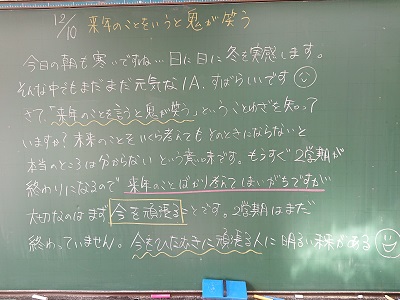 12/10 来年のことをいうと鬼が笑う
今日の朝も寒いですね… 日に日に冬を実感します。
そんな中でもまだまだ元気な1A、すばらしいです
さて、「来年のことを言うと鬼が笑う」ということわざを知って
いますか？未来のことをいくら考えてもそのときにならないと
本当のところは分からないという意味です。もうすぐ2学期が
終わりになるので来年のことばかり考えてしまいがちですが
大切なのはまず今を頑張ることです。2学期はまだ
終わっていません。今をひたむきに頑張る人に明るい未来がある